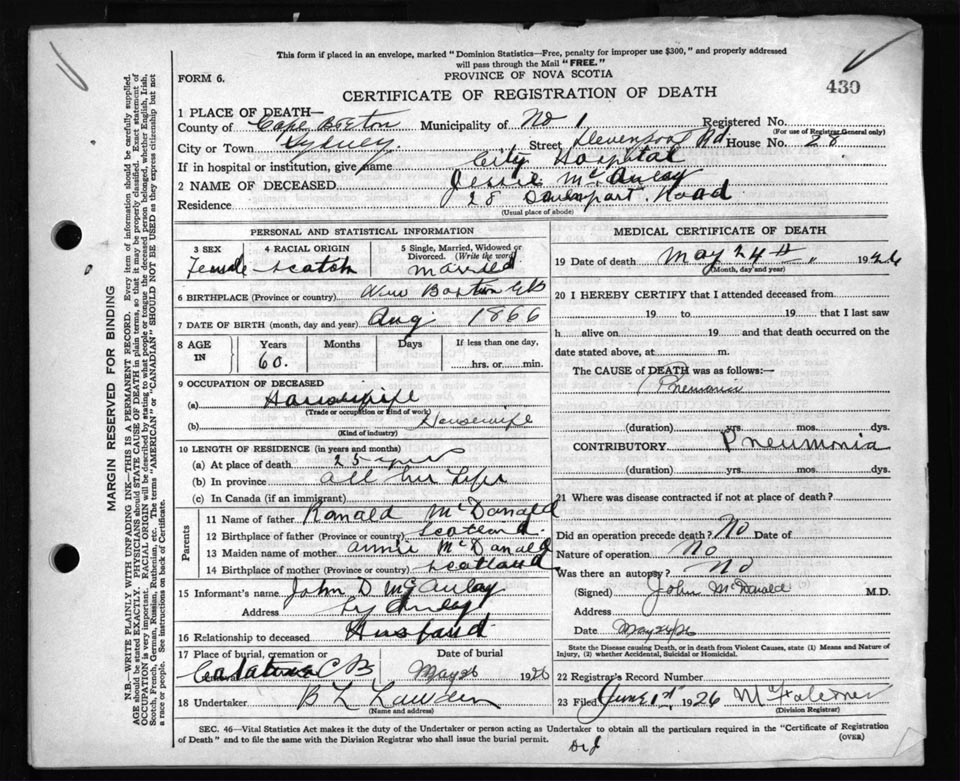 This form if placed in an envelope, marked "Dominion Statistics—Free, penalty for improper use $300," and properly addressed
will pass through the Mail "FREE."
FORM 6.
PROVINCE OF NOVA SCOTIA
430
CERTIFICATE OF REGISTRATION OF DEATH
1 PLACE OF DEATH—
County of Cape Breton Municipality of No 1 Registered No.
(For use of Registrar General only)
City or Town Sydney. Street Devenport Rd House No. 28
If in hospital or institution, give name City Hospital
2 NAME OF DECEASED Jessie McAulay
Residence 28 Road
(Usual place of abode)
PERSONAL AND STATISTICAL INFORMATION
3 SEX 4 RACIAL ORIGIN 5 Single, Married, Widowed or Divorced. (Write the word)
Female Scotch married
6 BIRTHPLACE (Province or country) CB
7 DATE OF BIRTH (month, day and year) Aug. 1866
8 AGE IN Years Months Days If less than one day,
60. hrs. or min.
9 OCCUPATION OF DECEASED
(a) Housewife
(Trade or occupation or kind of work)
(b) Housewife
(Kind of industry)
10 LENGTH OF RESIDENCE (in years and months)
(a) At place of death 25 years
(b) In province all her life
(c) In Canada (if an immigrant)
Parents
11 Name of father Ranald McDonald
12 Birthplace of father (Province or country) Scotland.
13 Maiden name of mother Annie McDanald
14 Birthplace of mother (Province or country) Scotland
15 Informant's name John D McAulay
Address Sydney
16 Relationship to deceased Husband
17 Place of burial, cremation or Date of burial
C B May 26 1926
18 Undertaker B L
(Name and address)
MEDICAL CERTIFICATE OF DEATH
19 Date of death May 24th 1926
(Month, day and year)
20 I HEREBY CERTIFY that I attended deceased from
19 to 19 that I last saw
h alive on 19 and that death occurred on
date stated above, at m.
The CAUSE of DEATH was as follows:—
Pnemonia
(duration) yrs. mos. dys.
CONTRIBUTORY Pneumonia
(duration) yrs. mos. dys.
21 Where was disease contracted if not at place of death?
Did an operation precede death? No Date of
Nature of operation No
Was there an autopsy? No
(Signed) John McDonald M.D.
Address
Date May 24/26
State the Disease causing Death, or in death from Violent Causes, state (1) Means and Nature of
Injury, (2) whether Accidental, Suicidal or Homicidal.
22 Registrar's Record Number
23 Filed June 1st 1926
(Division Registrar)
SEC. 46—Vital Statistics Act makes it the duty of the Undertaker or person acting as Undertaker to obtain all the particulars required in the "Certificate of Registration
of Death" and to file the same with the Division Registrar who shall issue the burial permit.
(OVER)
MARGIN RESERVED FOR BINDING
N.B.—WRITE PLAINLY WITH UNFADING INK—THIS IS A PERMANENT RECORD. Every item of information should be carefully supplied.
AGE should be stated EXACTLY. PHYSICIANS should STATE CAUSE OF DEATH in plain terms, so that it may be properly classified. Exact statement of
OCCUPATION is very important. RACIAL ORIGIN will be described by stating to what people or tongue the deceased person belonged, whether English, Irish,
Scotch, French, German, Russian, Ruthenian, etc. The terms "AMERICAN" or "CANADIAN" SHOULD NOT BE USED as they express citizenship but not
a race or people. See instructions on back of Certificate.